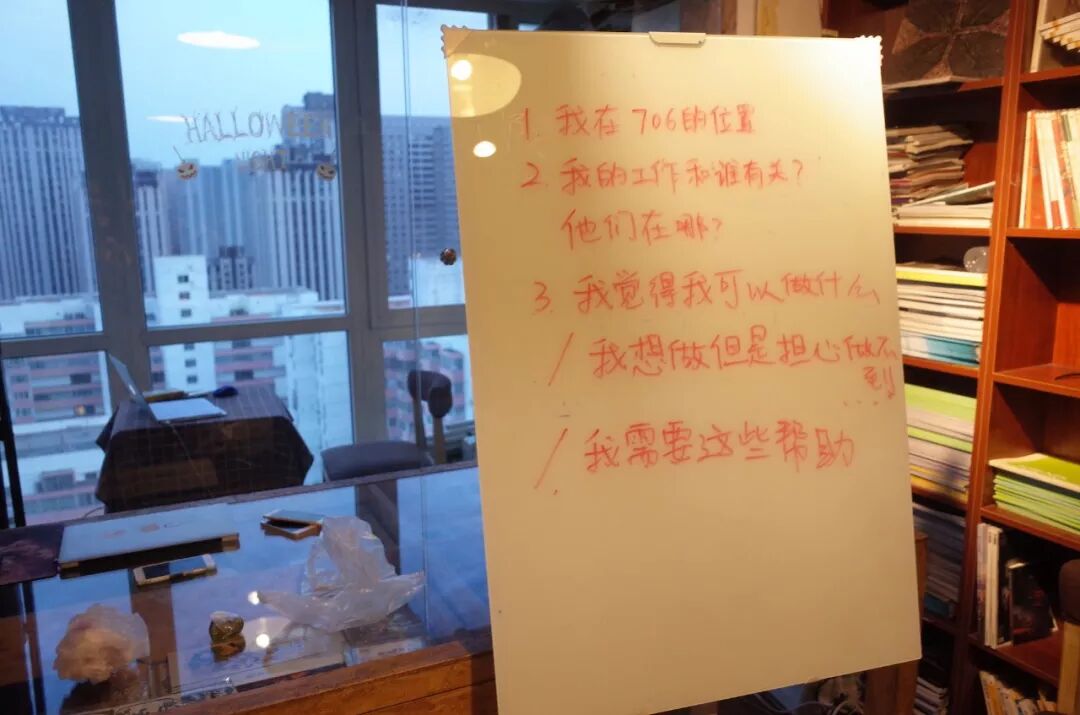 HALLOWEEN
NIGHT
1. 我在706的位置
2. 我的工作和谁有关？
他们在哪？
3. 我觉得我可以做什么
/ 我想做但是担心做不
到...
/ 我需要这些帮助